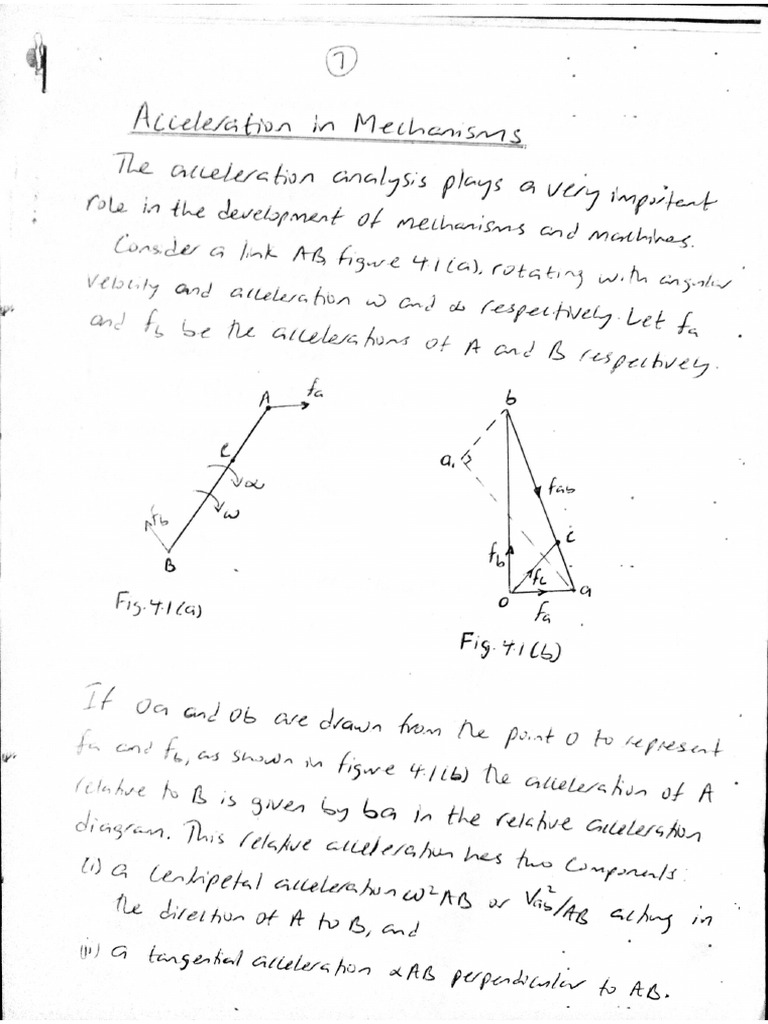 7
Acceleration in Mechanisms
The acceleration analysis plays a very important
role in the development of mechanisms and machines.
Consider a link AB, figure 4.1(a), rotating with angular
velocity and acceleration ω and α respectively. Let fa
and fb be the accelerations of A and B respectively.
A
fa
C
α
ω
fb
B
Fig. 4.1(a)
b
a₁
fab
c
fb
fc
o
a
fa
Fig. 4.1(b)
If oa and ob are drawn from the point o to represent
fa and fb, as shown in figure 4.1(b) the acceleration of A
relative to B is given by ba in the relative acceleration
diagram. This relative acceleration has two components:
(i) a centripetal acceleration ω²AB or Vab²/AB acting in
the direction of A to B, and
(ii) a tangential acceleration αAB perpendicular to AB.